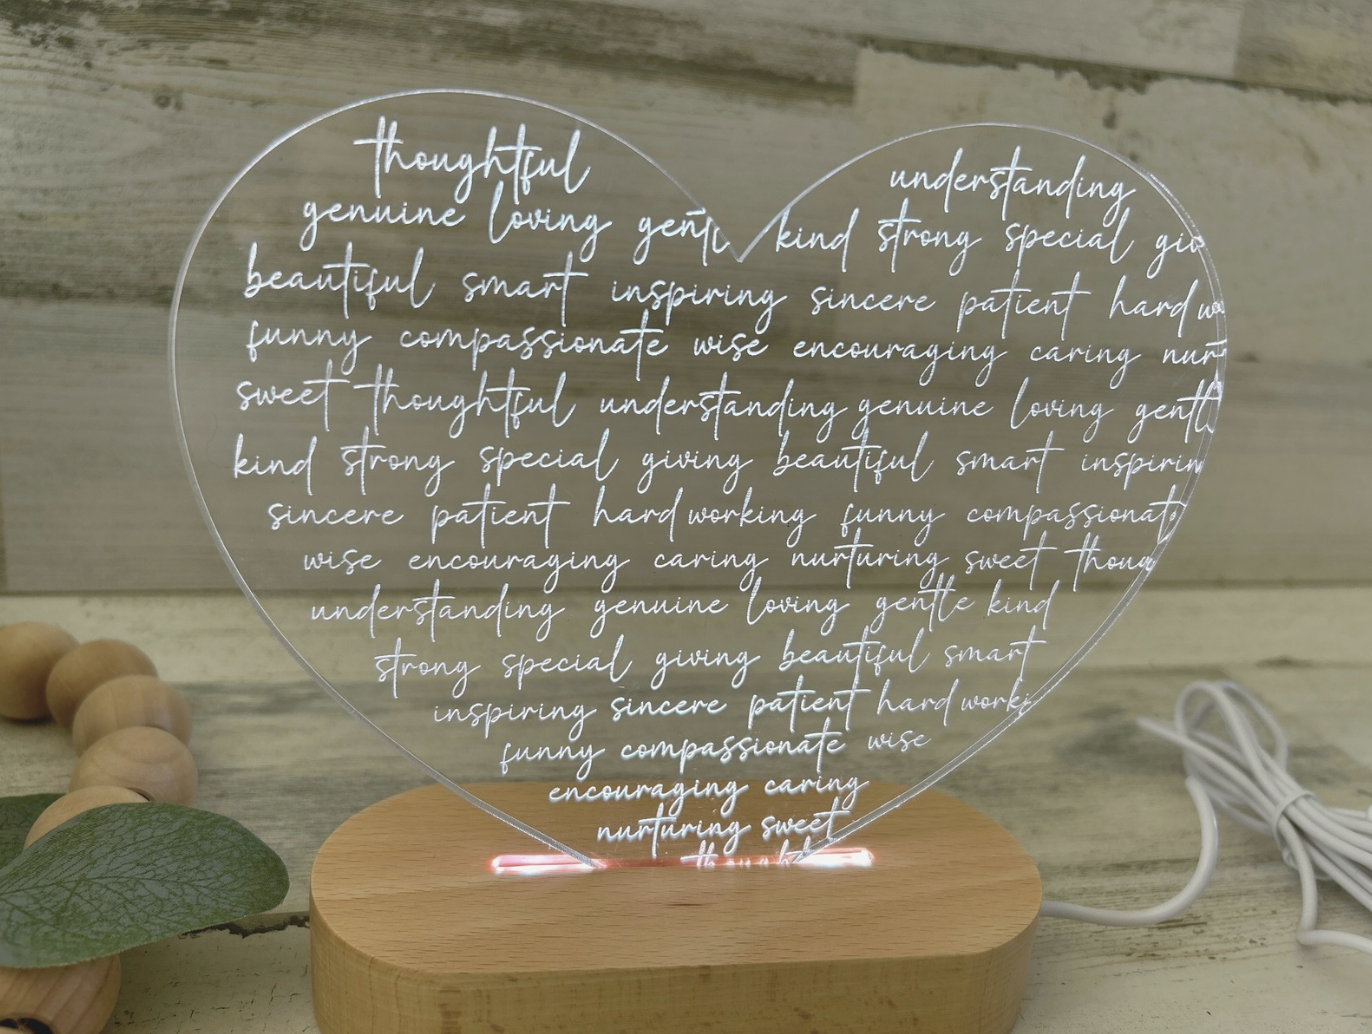 thoughtful understanding
genuine loving gentl kind strong special giv
beautiful smart inspiring sincere patient hard w
funny compassionate wise encouraging caring nurt
sweet thoughtful understanding genuine loving gentl
kind strong special giving beautiful smart inspirin
sincere patient hard working funny compassionat
wise encouraging caring nurturing sweet thoug
understanding genuine loving gentle kind
strong special giving beautiful smart
inspiring sincere patient hard worki
funny compassionate wise
encouraging caring
nurturing sweet
though